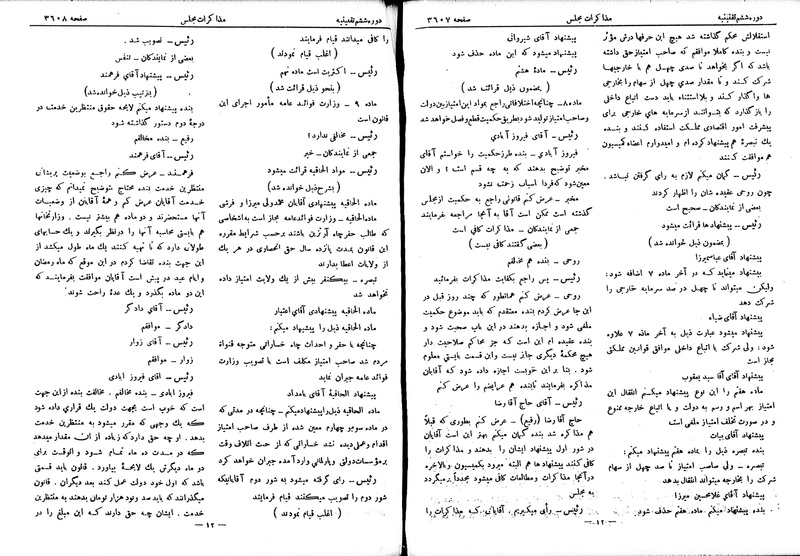 دوره ششم تقنینیه
مذاکرات مجلس
صفحه ۳۶۰۷
استقلالش محکم گذاشته شد هیچ این حرفها درش مؤثر
نیست و بنده کاملا موافقم که صاحب امتیاز حق داشته
باشد که اگر بخواهد تا صدی چهل هم با خارجیها
شرکت کند و تا مقدار صدی چهل از سهام را بخارجی
ها واگذار کند و بلااستثناء باید دست اتباع داخلی
را باز گذارد که بتوانند از سرمایه های خارجی برای
پیشرفت امور اقتصادی مملکت استفاده کنند و بنده
یک تبصرهٔ هم پیشنهاد کرده ام و امیدوارم اعضاء کمیسیون
هم موافقت کنند
رئیس - گمان میکنم لازم به رای گرفتن نباشد.
چون روحی عقیده شان را اظهار کردند
بعضی از نمایندگان - صحیح است
رئیس - پیشنهادها قرائت میشود
( بمضمون ذیل خوانده شد )
پیشنهاد آقای عباس میرزا
پیشنهاد مینماید که در آخر ماده ۷ اضافه شود:
ولیکن میتواند تا چهل در صد سرمایه خارجی را
شرکت دهد
پیشنهاد آقای ضیاء
پیشنهاد میشود عبارت ذیل به آخر ماده ۷ علاوه
شود: ولی شرکت با اتباع داخلی موافق قوانین مملکتی
مجاز است
پیشنهاد آقای آقا سید یعقوب
ماده هفتم را این نوع پیشنهاد میکنم انتقال این
امتیاز بهر اسم و رسم به دولت و یا اتباع خارجه ممنوع
و در صورت تخلف امتیاز ملغی است
پیشنهاد آقای بیات
بنده تبصره ذیل را بماده هفتم پیشنهاد میکنم:
تبصره - ولی صاحب امتیاز تا صد چهل از سهام
شرکت را بخارجه میتواند انتقال بدهد
پیشنهاد آقای غلامحسین میرزا
بنده پیشنهاد میکنم ماده هفتم حذف شود.
پیشنهاد آقای شیروانی
پیشنهاد میشود که این ماده حذف شود
رئیس - مادهٔ هشتم
( بمضمون ذیل قرائت شد )
ماده ۸ - چنانچه اختلافاتی راجع بمواد این امتیاز بین دولت
و صاحب امتیاز تولید شود بطریق حکمیت قطع و فصل خواهد شد
رئیس - آقای فیروز آبادی
فیروز آبادی - بنده طرز حکمیت را خواستم آقای
مخبر توضیح بدهند که به چه قسم است؟ و الان
معین شود که فردا اسباب زحمت نشود
مخبر - عرض کنم قانونی راجع به حکمیت از مجلس
گذشته است ممکن است آقا به آنجا مراجعه بفرمایند
جمعی از نمایندگان - مذاکرات کافی است
( بعضی گفتند کافی نیست )
روحی - بنده هم مخالفم
رئیس - پس راجع بکفایت مذاکرات بفرمائید
روحی - عرض کنم همانطور که چند روز قبل در
این جا عرض کردم بنده معتقدم که باید موضوع حکمیت
ملغی شود و اجازه بدهند در این باب صحبت شود و
بنده عقیده ام این است که جز محاکم صلاحیت دار
هیچ محکمهٔ دیگری جایز نیست و این قسمت بایستی معلوم
شود. بنا بر این خوبست اجازه داده شود که آقایان
مذاکره بفرمایند تا بنده هم عرایضم را عرض کنم
رئیس - آقای حاج آقا رضا
حاج آقا رضا (رفیع) - عرض کنم بطوری که قبلاً
هم مذاکره شد بنده گمان میکنم بهتر این است آقایان
در شور اول پیشنهاد ایشان را بدهند و مذاکرات را
کافی کنند پیشنهادها هم البته میرود بکمیسیون و بالاخره
در آنجا مذاکرات و مطالعات کافی میشود مجدداً برمیگردد
به مجلس
رئیس - رأی میگیریم. آقایانی که مذاکرات را
-۱۲-
دوره ششم تقنینیه
مذاکرات مجلس
صفحه ۳۶۰۸
را کافی میدانند قیام فرمایند
( اغلب قیام نمودند )
رئیس - اکثریت است ماده نهم
( بنحو ذیل قرائت شد )
ماده ۹ - وزارت فوائد عامه مأمور اجرای این
قانون است
رئیس - مخالفی ندارد؟
جمعی از نمایندگان - خیر
رئیس - مواد الحاقیه قرائت میشود
( بشرح ذیل خوانده شد )
ماده الحاقیه پیشنهادی آقایان محمد ولی میرزا و فرشی
ماده الحاقیه - وزارت فوائد عامه مجاز است به اشخاصی
که طالب حفر چاه آرتزین باشند بر حسب شرایط مقرره
این قانون بمدت پانزده سال حق انحصاری در هر یک
از ولایات اعطا بدارند
تبصره - بیکنفر بیش از یک ولایت امتیاز داده
نخواهد شد
ماده الحاقیه پیشنهادی آقای اعتبار
ماده الحاقیه ذیل را پیشنهاد میکنم:
چنانچه با حفر و احداث چاه خساراتی متوجه قنواة
مردم شد صاحب امتیاز مکلف است با تصویب وزارت
فوائد عامه جبران نماید
پیشنهاد الحاقیهٔ آقای بامداد
ماده الحاقیه ذیل را پیشنهاد میکنم - چنانچه در مدتی که
در ماده سوم و چهارم معین شده از طرف صاحب امتیاز
اقدام و عملی دیده نشد خساراتی که از حیث اتلاف وقت
بر مؤسسات دولتی و پارلمانی وارد آمده جبران خواهد کرد
رئیس - رای گرفته میشود به شور دوم آقایانیکه
شور دوم را تصویب میکنند قیام فرمایند
( اغلب قیام نمودند )
رئیس - تصویب شد.
بعضی از نمایندگان - تنفس
رئیس - پیشنهاد آقای فرهمند
( بترتیب ذیل خوانده شد )
بنده پیشنهاد میکنم لایحه حقوق منتظرین خدمت در
درجهٔ دوم دستور گذاشته شود
رفیع - بنده مخالفم
رئیس - آقای فرهمند
فرهمند - عرض کنم راجع بوضعیت پریشانی
منتظرین خدمت بنده محتاج بتوضیح نمیدانم که چیزی
خدمت آقایان عرض کنم و همهٔ آقایان از وضعیات
آنها مستحضرند و دو ماده هم بیشتر نیست. وزارتخانها
هم بایستی محاسبه آنها را در نظر بگیرند و یک حسابهای
طولانی دارد که تا تهیه کنند یک ماه طول میکشد از
این جهت بنده تقاضا کردم در این موقع که ماه رمضان
و ایام عید در پیش است آقایان موافقت بفرمایند که
این دو ماده بگذرد و یک عدهٔ راحت شوند
رئیس - آقای دادگر
دادگر - موافقم
رئیس - آقای زوار
زوار - موافقم
رئیس - آقای فیروز آبادی
فیروز آبادی - بنده مخالفم. مخالفت بنده از این جهت
است که خوب است بجهت دولت یک قراری داده شود
که یک وجهی که مقرر میشود به منتظرین خدمت
بدهد. او چه حق دارد که زیاده از آن مقدار میدهد
که در مدت ده ماه تمام شود و آنوقت برای
دو ماه دیگرش یک لایحهٔ بیاورد. قانون باید قسمی
باشد که اول خود دولت عمل کند بعد دیگران. قانون
میگذرانند که باید صد و نود هزار تومان بدهند به منتظرین
خدمت. ایشان چه حق دارند که این مبلغ را در
-۱۲-